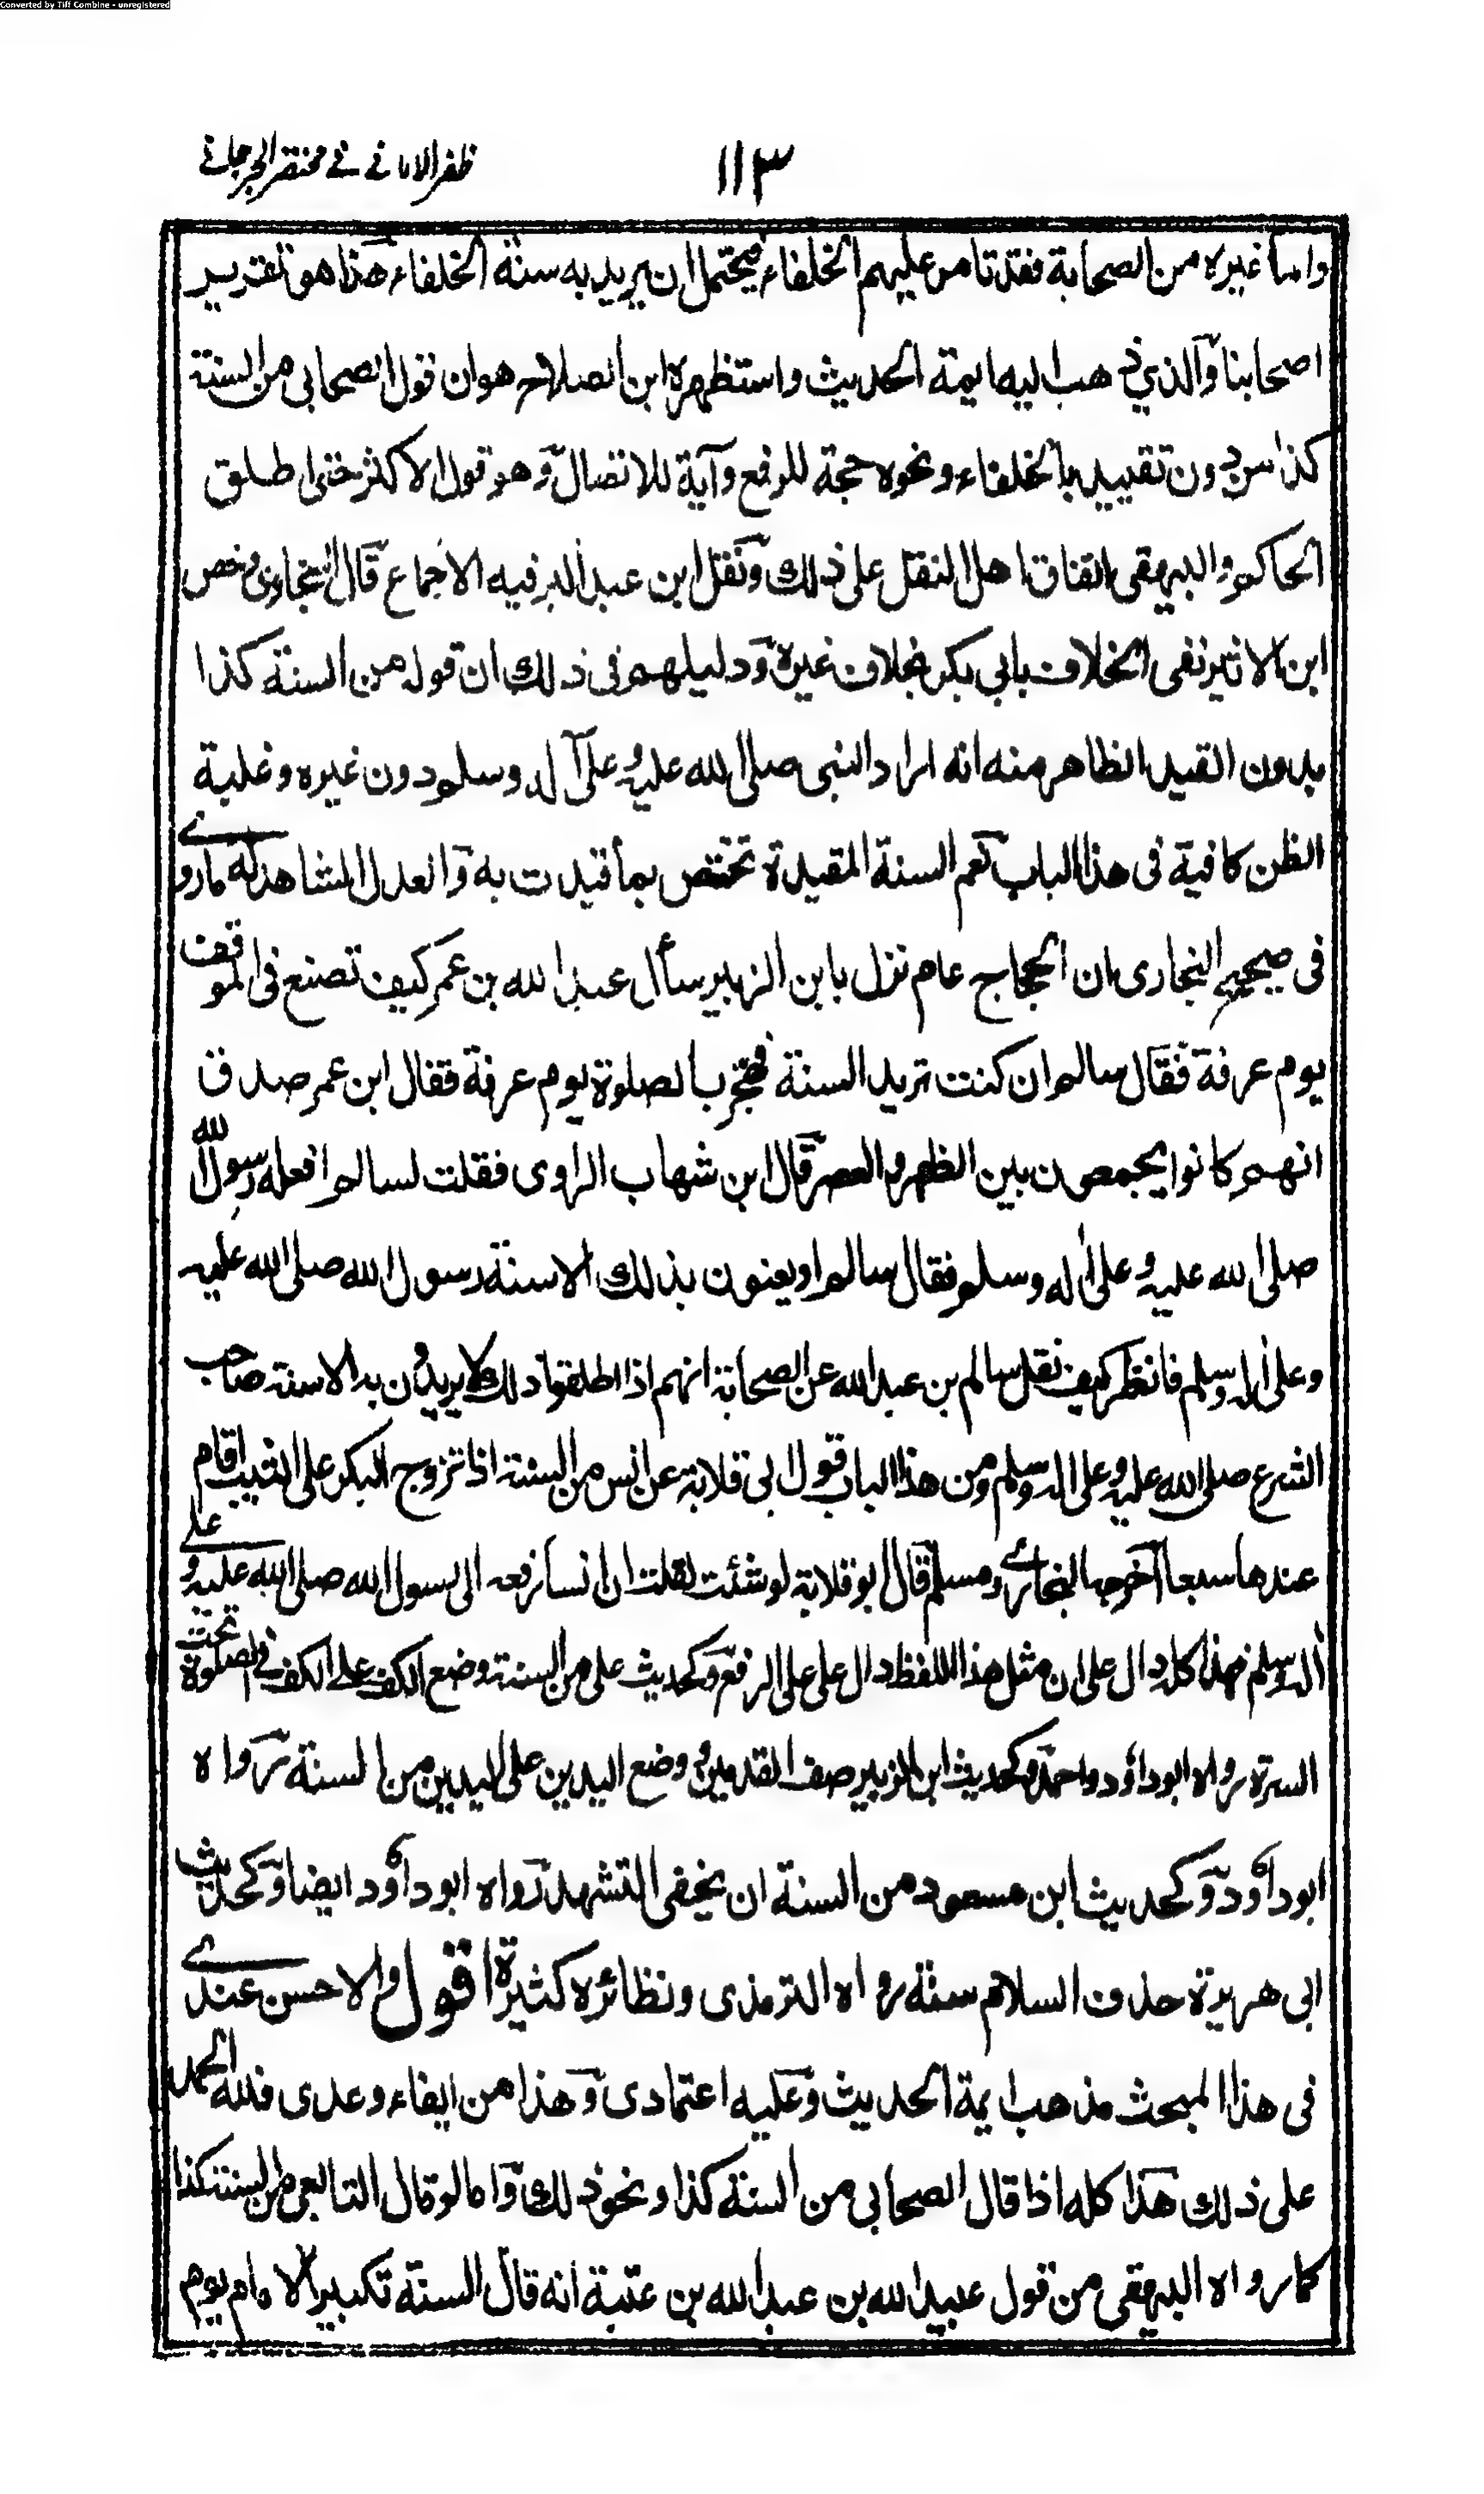 Converted by Tiff Combine - unregistered
١١٣ ظفر الامانے فے مختصر الجرجانے
واما غيره من الصحابة فقد تامر عليهم الخلفاء فيحتمل ان يريد به سنة الخلفاء هذا هو تقرير
اصحابنا والذي ذهب اليه ايمة الحديث واستظهره ابن الصلاح هو ان قول الصحابي من السنة
كذا من دون تقييد بالخلفاء ونحوه حجة للرفع وآية للاتصال وهو قول الاكثر حتى اطلق
الحاكم والبيهقي اتفاق اهل النقل على ذلك ونقل ابن عبد البر فيه الاجماع قال السخاوي وخص
ابن الاثير نفى الخلاف بابي بكر بخلاف غيرة ودليلهم في ذلك ان قوله من السنة كذا
بدون القيد الظاهر منه انه اراد النبي صلى الله عليه وعلى آله وسلم دون غيره وغلبة
الظن كافية في هذا الباب نعم السنة المقيدة تختص بما قيدت به والعدل المشاهد له ماروے
في صحيح البخاري ان الحجاج عام نزل بابن الزبير سأل عبد الله بن عمر كيف تصنع في الموقف
يوم عرفة فقال سالم ان كنت تريد السنة فهجر بالصلوة يوم عرفة فقال ابن عمر صدق
انهم كانوا يجمعون بين الظهر والعصر قال ابن شهاب الراوي فقلت لسالم افعله رسول الله
صلى الله عليه وعلى اله وسلم فقال سالم او يعنون بذلك الا سنة رسول الله صلى الله عليه
وعلى اله وسلم فانظر كيف نقل سالم بن عبد الله عن الصحابة انهم اذا اطلقوا ذلك لا يريدون به الا سنة صاحب
الشرع صلى الله عليه وعلى اله وسلم ومن هذا الباب قول ابي قلابة عن انس من السنة اذا تزوج البكر على الثيب اقام
عندها سبعا اخرجه البخارے ومسلم قال ابو قلابة لو شئت لقلت ان انسا رفعه الى رسول الله صلى الله عليه وعلے
اله وسلم فهذا كله دال على ان مثل هذا اللفظ دال على على الرفع وكحديث علي من السنة وضع الكف على الكف في الصلوة تحت
السرة رواه ابو داود واحمد وكحديث ابن الزبير صف القدمين ووضع اليدين على اليدين من السنة رواه
ابو داود وكحديث ابن مسعود من السنة ان يخفى التشهد رواه ابو داود ايضا وكحديث
ابي هريرة حذف السلام سنة رواه الترمذي ونظائره كثيرة اقول والاحسن عندے
في هذا المبحث مذهب ايمة الحديث وعليه اعتمادي وهذا من ايفاء وعدي فلله الحمد
على ذلك هذا كله اذا قال الصحابي من السنة كذا ونحو ذلك واما لو قال التابعي من السنة كذا
كما رواه البيهقي من قول عبيد الله بن عبد الله بن عتبة انه قال السنة تكبير الامام يوم